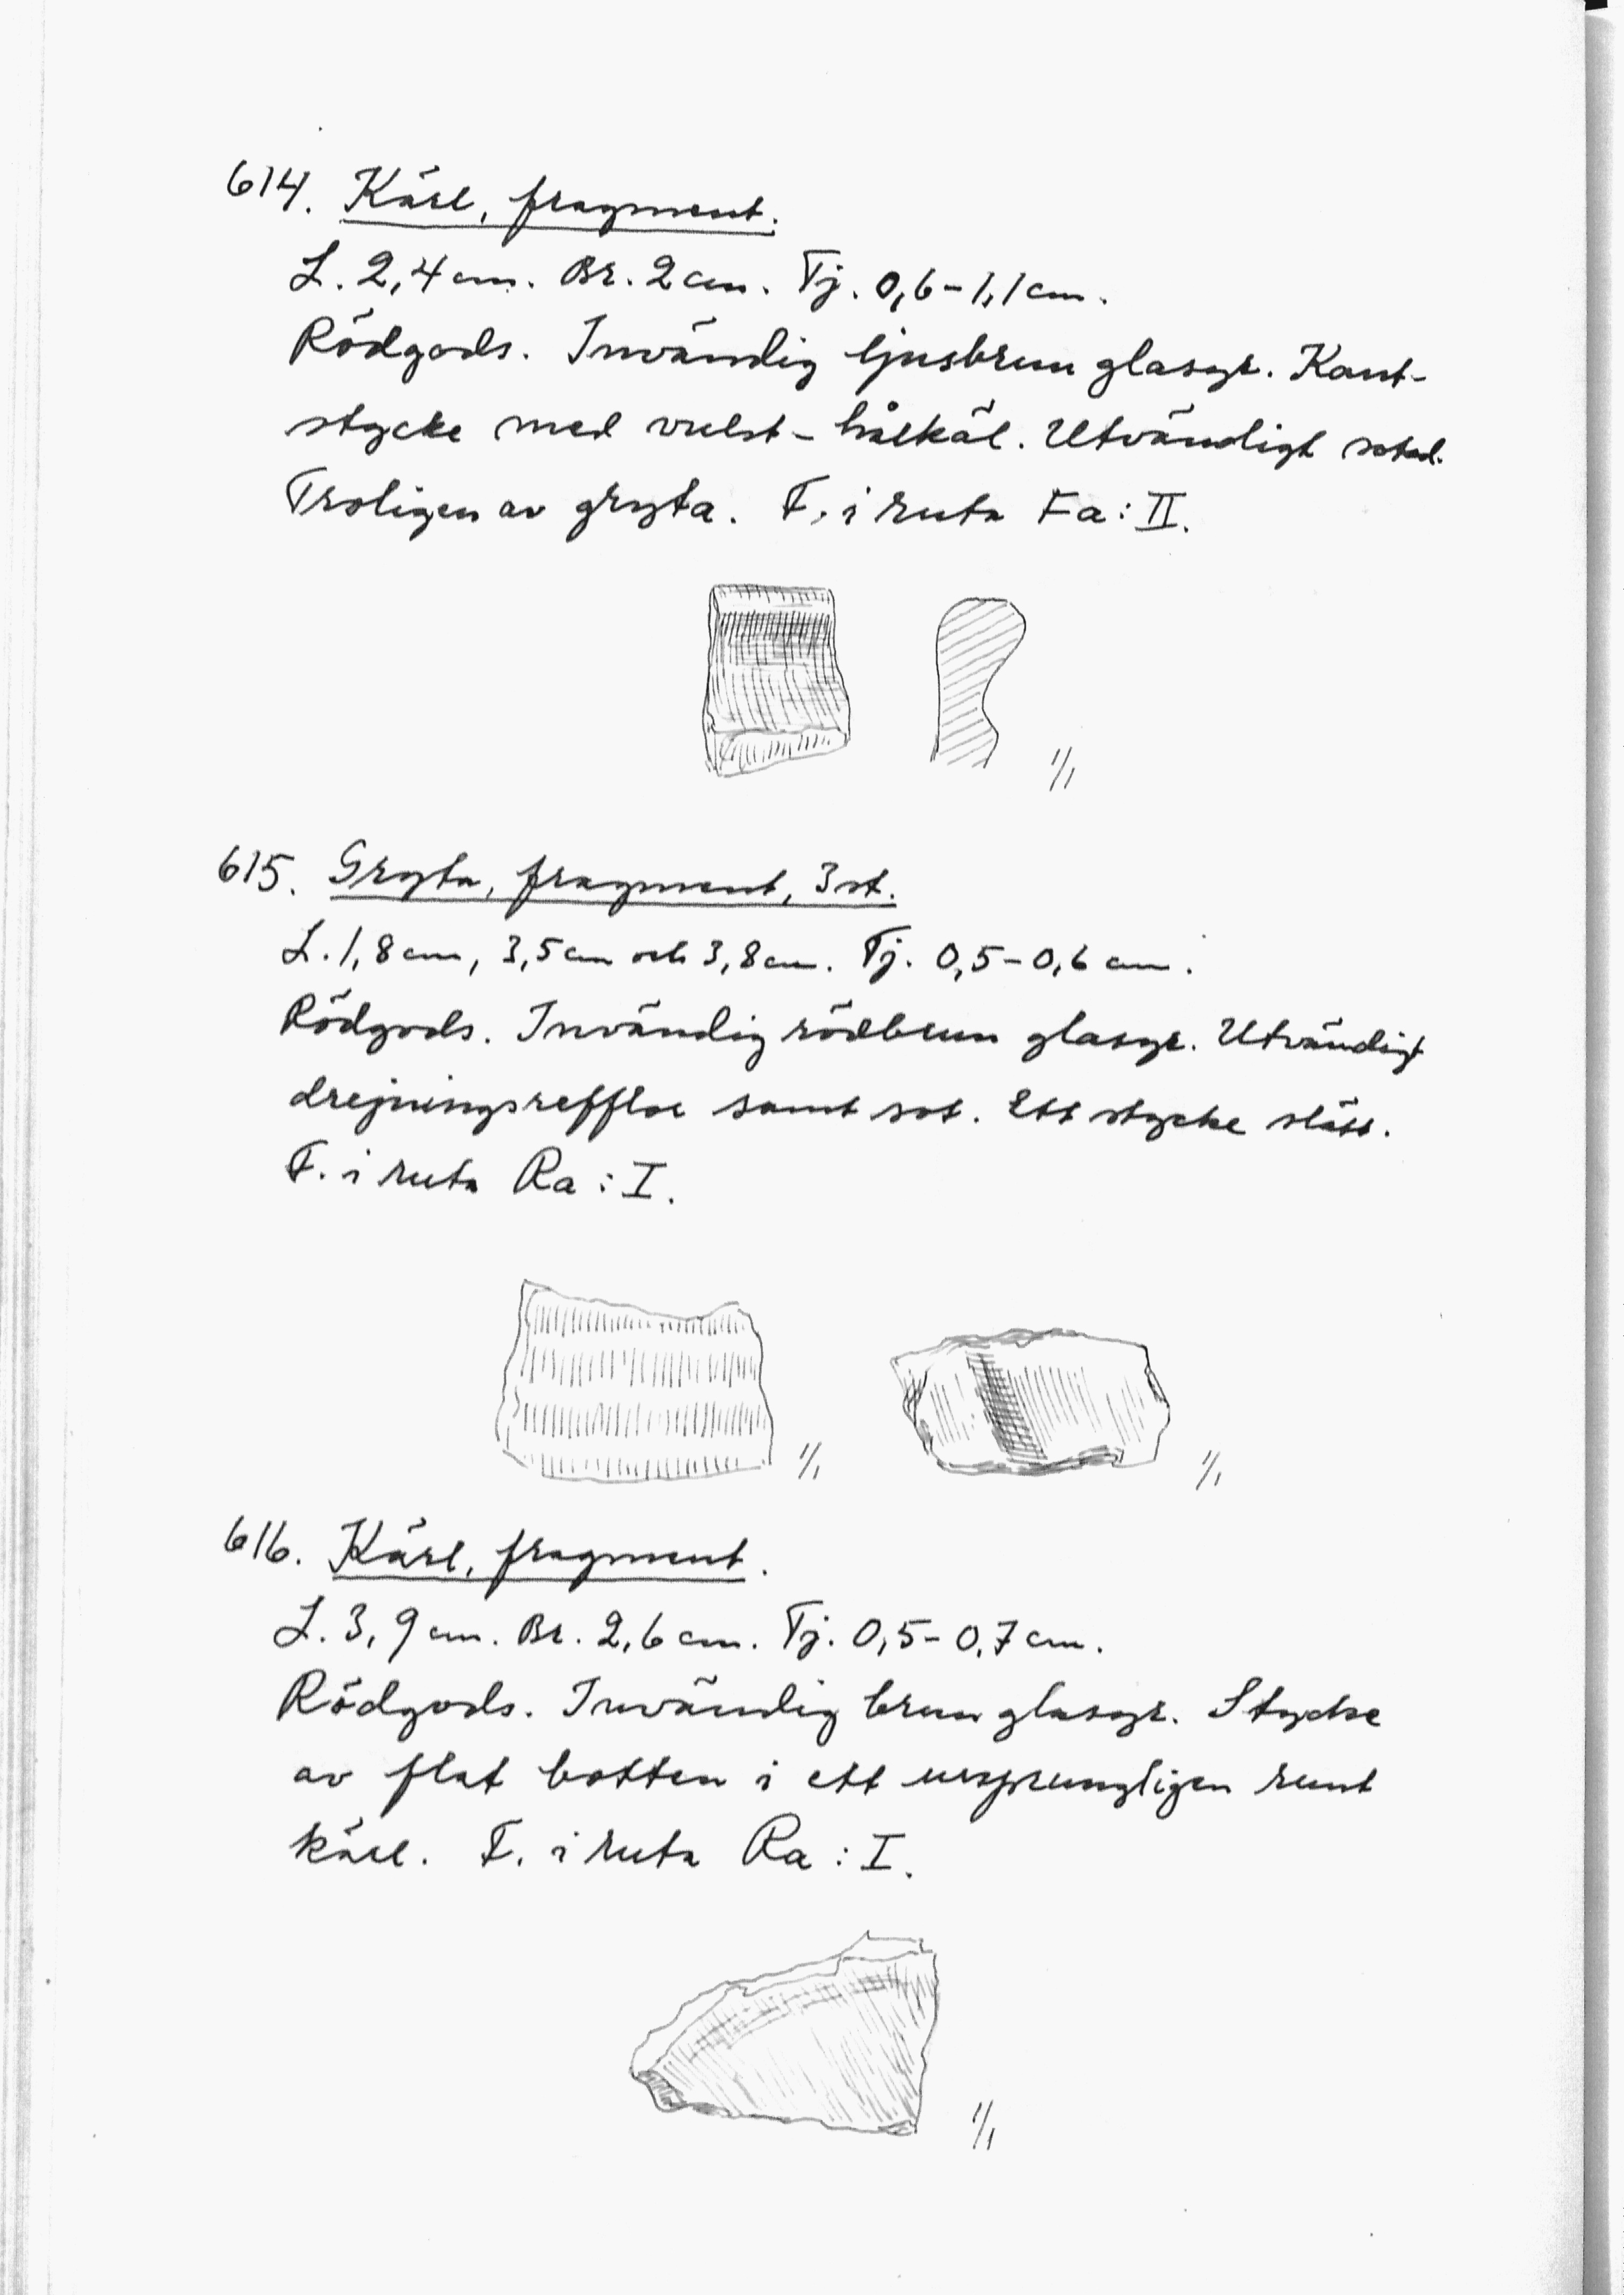 614. Kärl, fragment.
L. 2,4 cm. Br. 2 cm. Tj. 0,6-1,1 cm.
Rödgods. Invändig ljusbrun glasyr. Kant-
stycke med vulst - hålkäl. Utvändigt sotad.
Troligen av gryta. F. i ruta Fa:II.
1/1
615. Gryta, fragment, 3 st.
L. 1,8 cm, 3,5 cm och 3,8 cm. Tj. 0,5-0,6 cm.
Rödgods. Invändig rödbrun glasyr. Utvändigt
drejningsrefflor samt sot. Ett stycke slätt.
F. i ruta Ra:I.
1/1 1/1
616. Kärl, fragment.
L. 3,9 cm. Br. 2,6 cm. Tj. 0,5-0,7 cm.
Rödgods. Invändig brun glasyr. Stycke
av flat botten i ett ursprungligen runt
kärl. F. i ruta Ra:I.
1/1